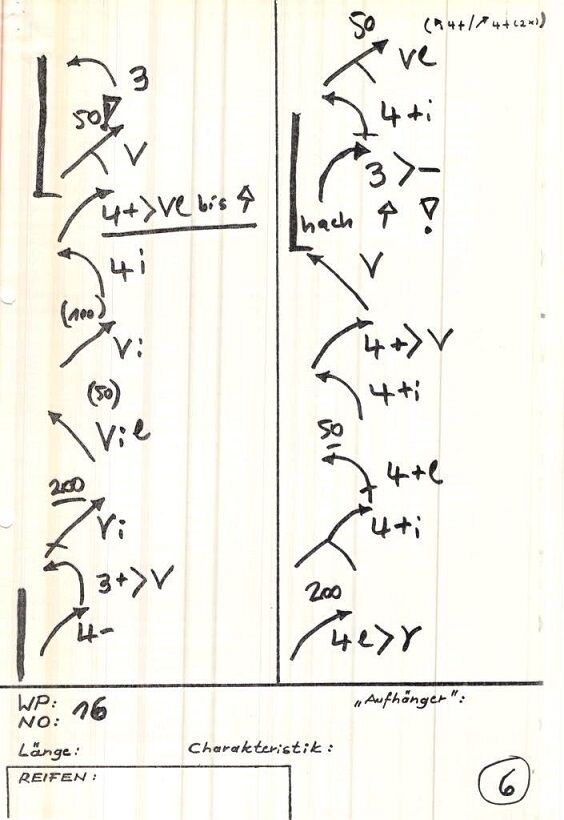 3
50!
V
4+>Ve bis ⇧
4i
(100)
Vi
(50)
Vie
200
Vi
3+>V
4-
50
(↖4+/↗4+(2x))
Ve
4+i
3>-
nach ⇧ !
V
4+>V
4+i
50
4+e
4+i
200
4e>V
WP:
NO: 16
„Aufhänger":
Länge:
Charakteristik:
REIFEN:
6